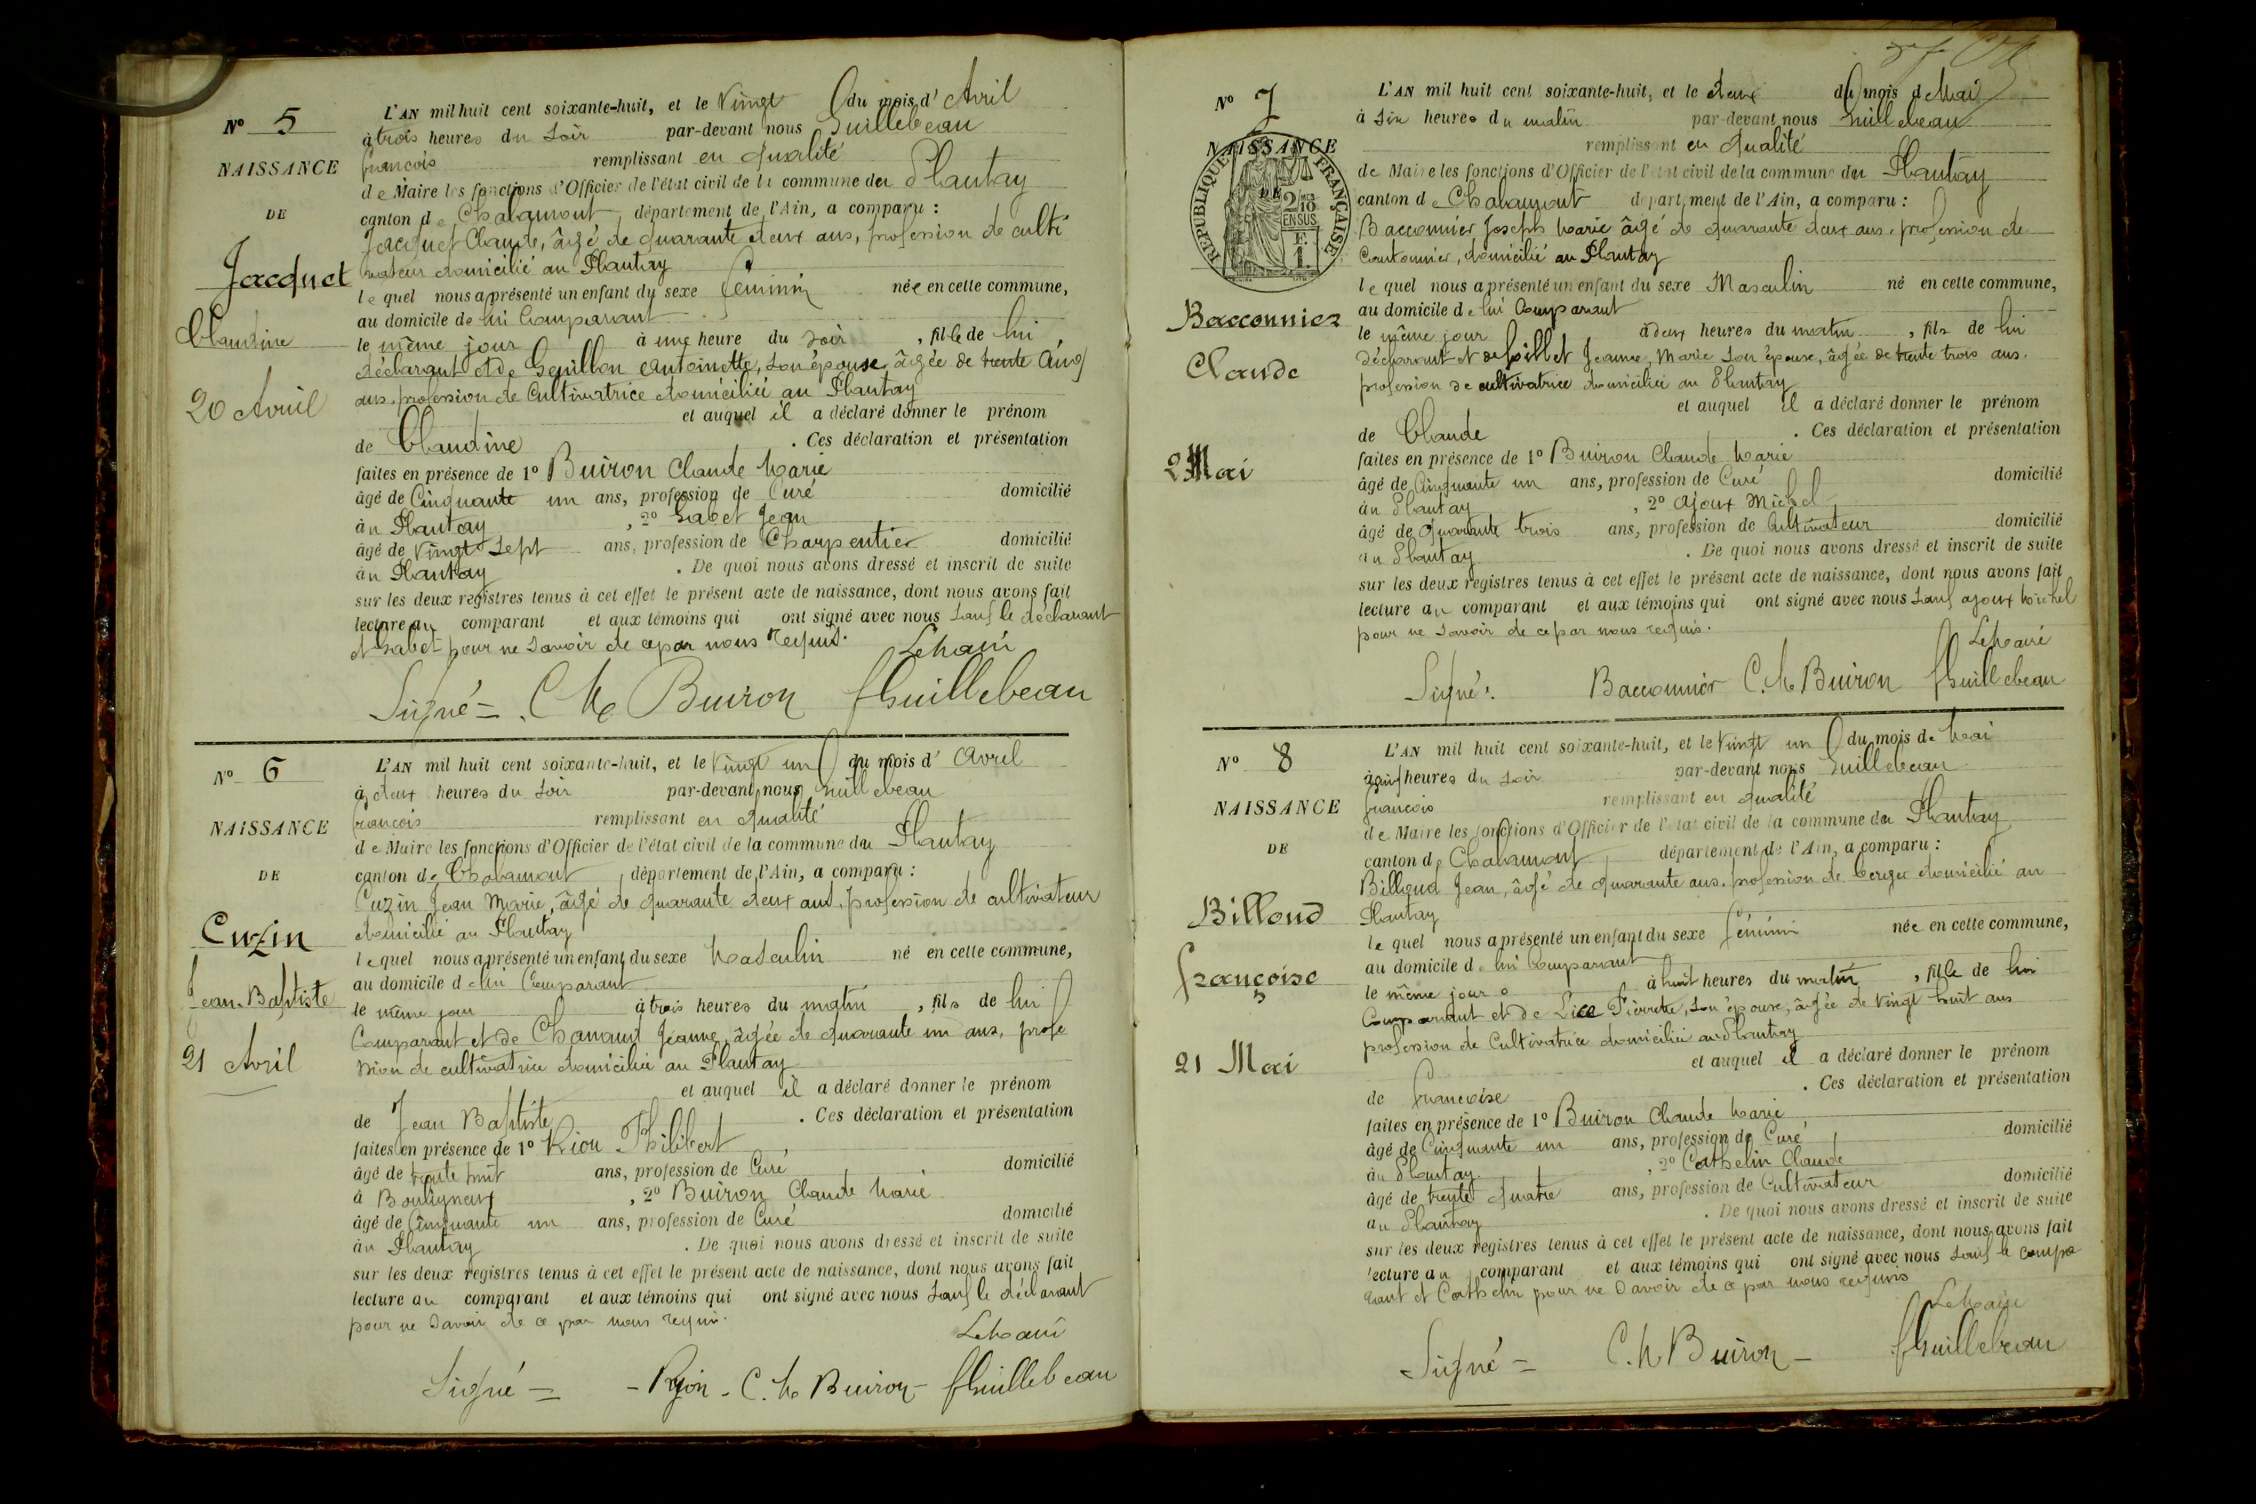 N° 5
NAISSANCE
DE
Jacquet
Claudine
20 Avril
L'AN mil huit cent soixante-huit, et le Vingt du mois d' Avril
à trois heures du soir par-devant nous Guillebeau
françois remplissant en qualité
de Maire les fonctions d'Officier de l'état civil de la commune du Plantay
canton de Chalamont, département de l'Ain, a comparu :
Jacquet Claude, âgé de quarante deux ans, profession de culti
vateur domicilié au Plantay
lequel nous a présenté un enfant du sexe féminin née en cette commune,
au domicile de lui Comparant
le même jour à une heure du soir, fille de lui
déclarant et de Genillon Antoinette, son épouse âgée de trente cinq
ans, profession de Cultivatrice domiciliée au Plantay
et auquel il a déclaré donner le prénom
de Claudine . Ces déclaration et présentation
faites en présence de 1° Buiron Claude Marie
âgé de Cinquante un ans, profession de Curé domicilié
au Plantay , 2° Gabet Jean
âgé de Vingt Sept ans, profession de Charpentier domicilié
au Plantay . De quoi nous avons dressé et inscrit de suite
sur les deux registres tenus à cet effet le présent acte de naissance, dont nous avons fait
lecture au comparant et aux témoins qui ont signé avec nous Sauf le déclarant
et Gabet pour ne Savoir de ce par nous requis. Le Maire
Signé = C. M. Buiron fGuillebeau
N° 6
NAISSANCE
DE
Cuzin
Jean-Baptiste
21 Avril
L'AN mil huit cent soixante-huit, et le Vingt un du mois d' Avril
à deux heures du Soir par-devant nous Guillebeau
françois remplissant en qualité
de Maire les fonctions d'Officier de l'état civil de la commune du Plantay
canton de Chalamont, département de l'Ain, a comparu :
Cuzin Jean Marie, âgé de quarante deux ans, profession de cultivateur
domicilié au Plantay
lequel nous a présenté un enfant du sexe Masculin né en cette commune,
au domicile de lui Comparant
le même jour à trois heures du matin, fils de lui
Comparant et de Chanaud Jeanne, âgée de quarante un ans, profe
ssion de cultivatrice domiciliée au Plantay
et auquel il a déclaré donner le prénom
de Jean Baptiste . Ces déclaration et présentation
faites en présence de 1° Riou Philibert
âgé de trente huit ans, profession de Curé domicilié
à Bouligneux , 2° Buiron Claude Marie
âgé de Cinquante un ans, profession de Curé domicilié
au Plantay . De quoi nous avons dressé et inscrit de suite
sur les deux registres tenus à cet effet le présent acte de naissance, dont nous avons fait
lecture au comparant et aux témoins qui ont signé avec nous Sauf le déclarant
pour ne Savoir de ce par nous requis.
Le Maire
Signé = - Ryon - C. M. Buiron - fGuillebeau
N° 7
NAISSANCE
DE
RÉPUBLIQUE FRANÇAISE
2/10 EN SUS
F. 1.
Bacconnier
Claude
2 Mai
L'AN mil huit cent soixante-huit, et le deux du mois de Mai
à six heures du matin par-devant nous Guillebeau
remplissant en qualité
de Maire les fonctions d'Officier de l'état civil de la commune du Plantay
canton de Chalamont département de l'Ain, a comparu :
Bacconnier Joseph Marie âgé de quarante deux ans, profession de
Cantonnier, domicilié au Plantay
lequel nous a présenté un enfant du sexe Masculin né en cette commune,
au domicile de lui Comparant
le même jour à deux heures du matin, fils de lui
déclarant et de Jeanne, Marie son épouse, âgée de trente trois ans.
profession de cultivatrice domiciliée au Plantay
et auquel il a déclaré donner le prénom
de Claude . Ces déclaration et présentation
faites en présence de 1° Buiron Claude Marie
âgé de Cinquante un ans, profession de Curé domicilié
au Plantay , 2° Ajoux Michel
âgé de quarante trois ans, profession de Cultivateur domicilié
au Plantay . De quoi nous avons dressé et inscrit de suite
sur les deux registres tenus à cet effet le présent acte de naissance, dont nous avons fait
lecture au comparant et aux témoins qui ont signé avec nous Sauf ajoux Michel
pour ne Savoir de ce par nous requis.
Le Maire
Signé : Bacconnier C. M. Buiron fGuillebeau
N° 8
NAISSANCE
DE
Billoud
françoise
21 Mai
L'AN mil huit cent soixante-huit, et le Vingt un du mois de Mai
à cinq heures du soir par-devant nous Guillebeau
françois remplissant en qualité
de Maire les fonctions d'Officier de l'état civil de la commune du Plantay
canton de Chalamont, département de l'Ain, a comparu :
Billoud Jean, âgé de quarante ans, profession de berger domicilié au
Plantay
lequel nous a présenté un enfant du sexe féminin née en cette commune,
au domicile de lui Comparant
le même jour à huit heures du matin, fille de lui
Comparant et de Pierrette, son épouse, âgée de Vingt huit ans
profession de Cultivatrice domiciliée au Plantay
et auquel il a déclaré donner le prénom
de françoise . Ces déclaration et présentation
faites en présence de 1° Buiron Claude Marie
âgé de Cinquante un ans, profession de Curé domicilié
au Plantay , 2° Cathelin Claude
âgé de trente quatre ans, profession de Cultivateur domicilié
au Plantay . De quoi nous avons dressé et inscrit de suite
sur les deux registres tenus à cet effet le présent acte de naissance, dont nous avons fait
lecture au comparant et aux témoins qui ont signé avec nous Sauf le compa
rant et Cathelin pour ne Savoir de ce par nous requis
Le Maire
Signé = C. M Buiron - fGuillebeau